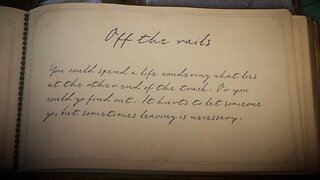 Off the rails
You could spend a life wondering what lies
at the other end of the track. Or you
could go find out. It hurts to let someone
go, but sometimes leaving is necessary.